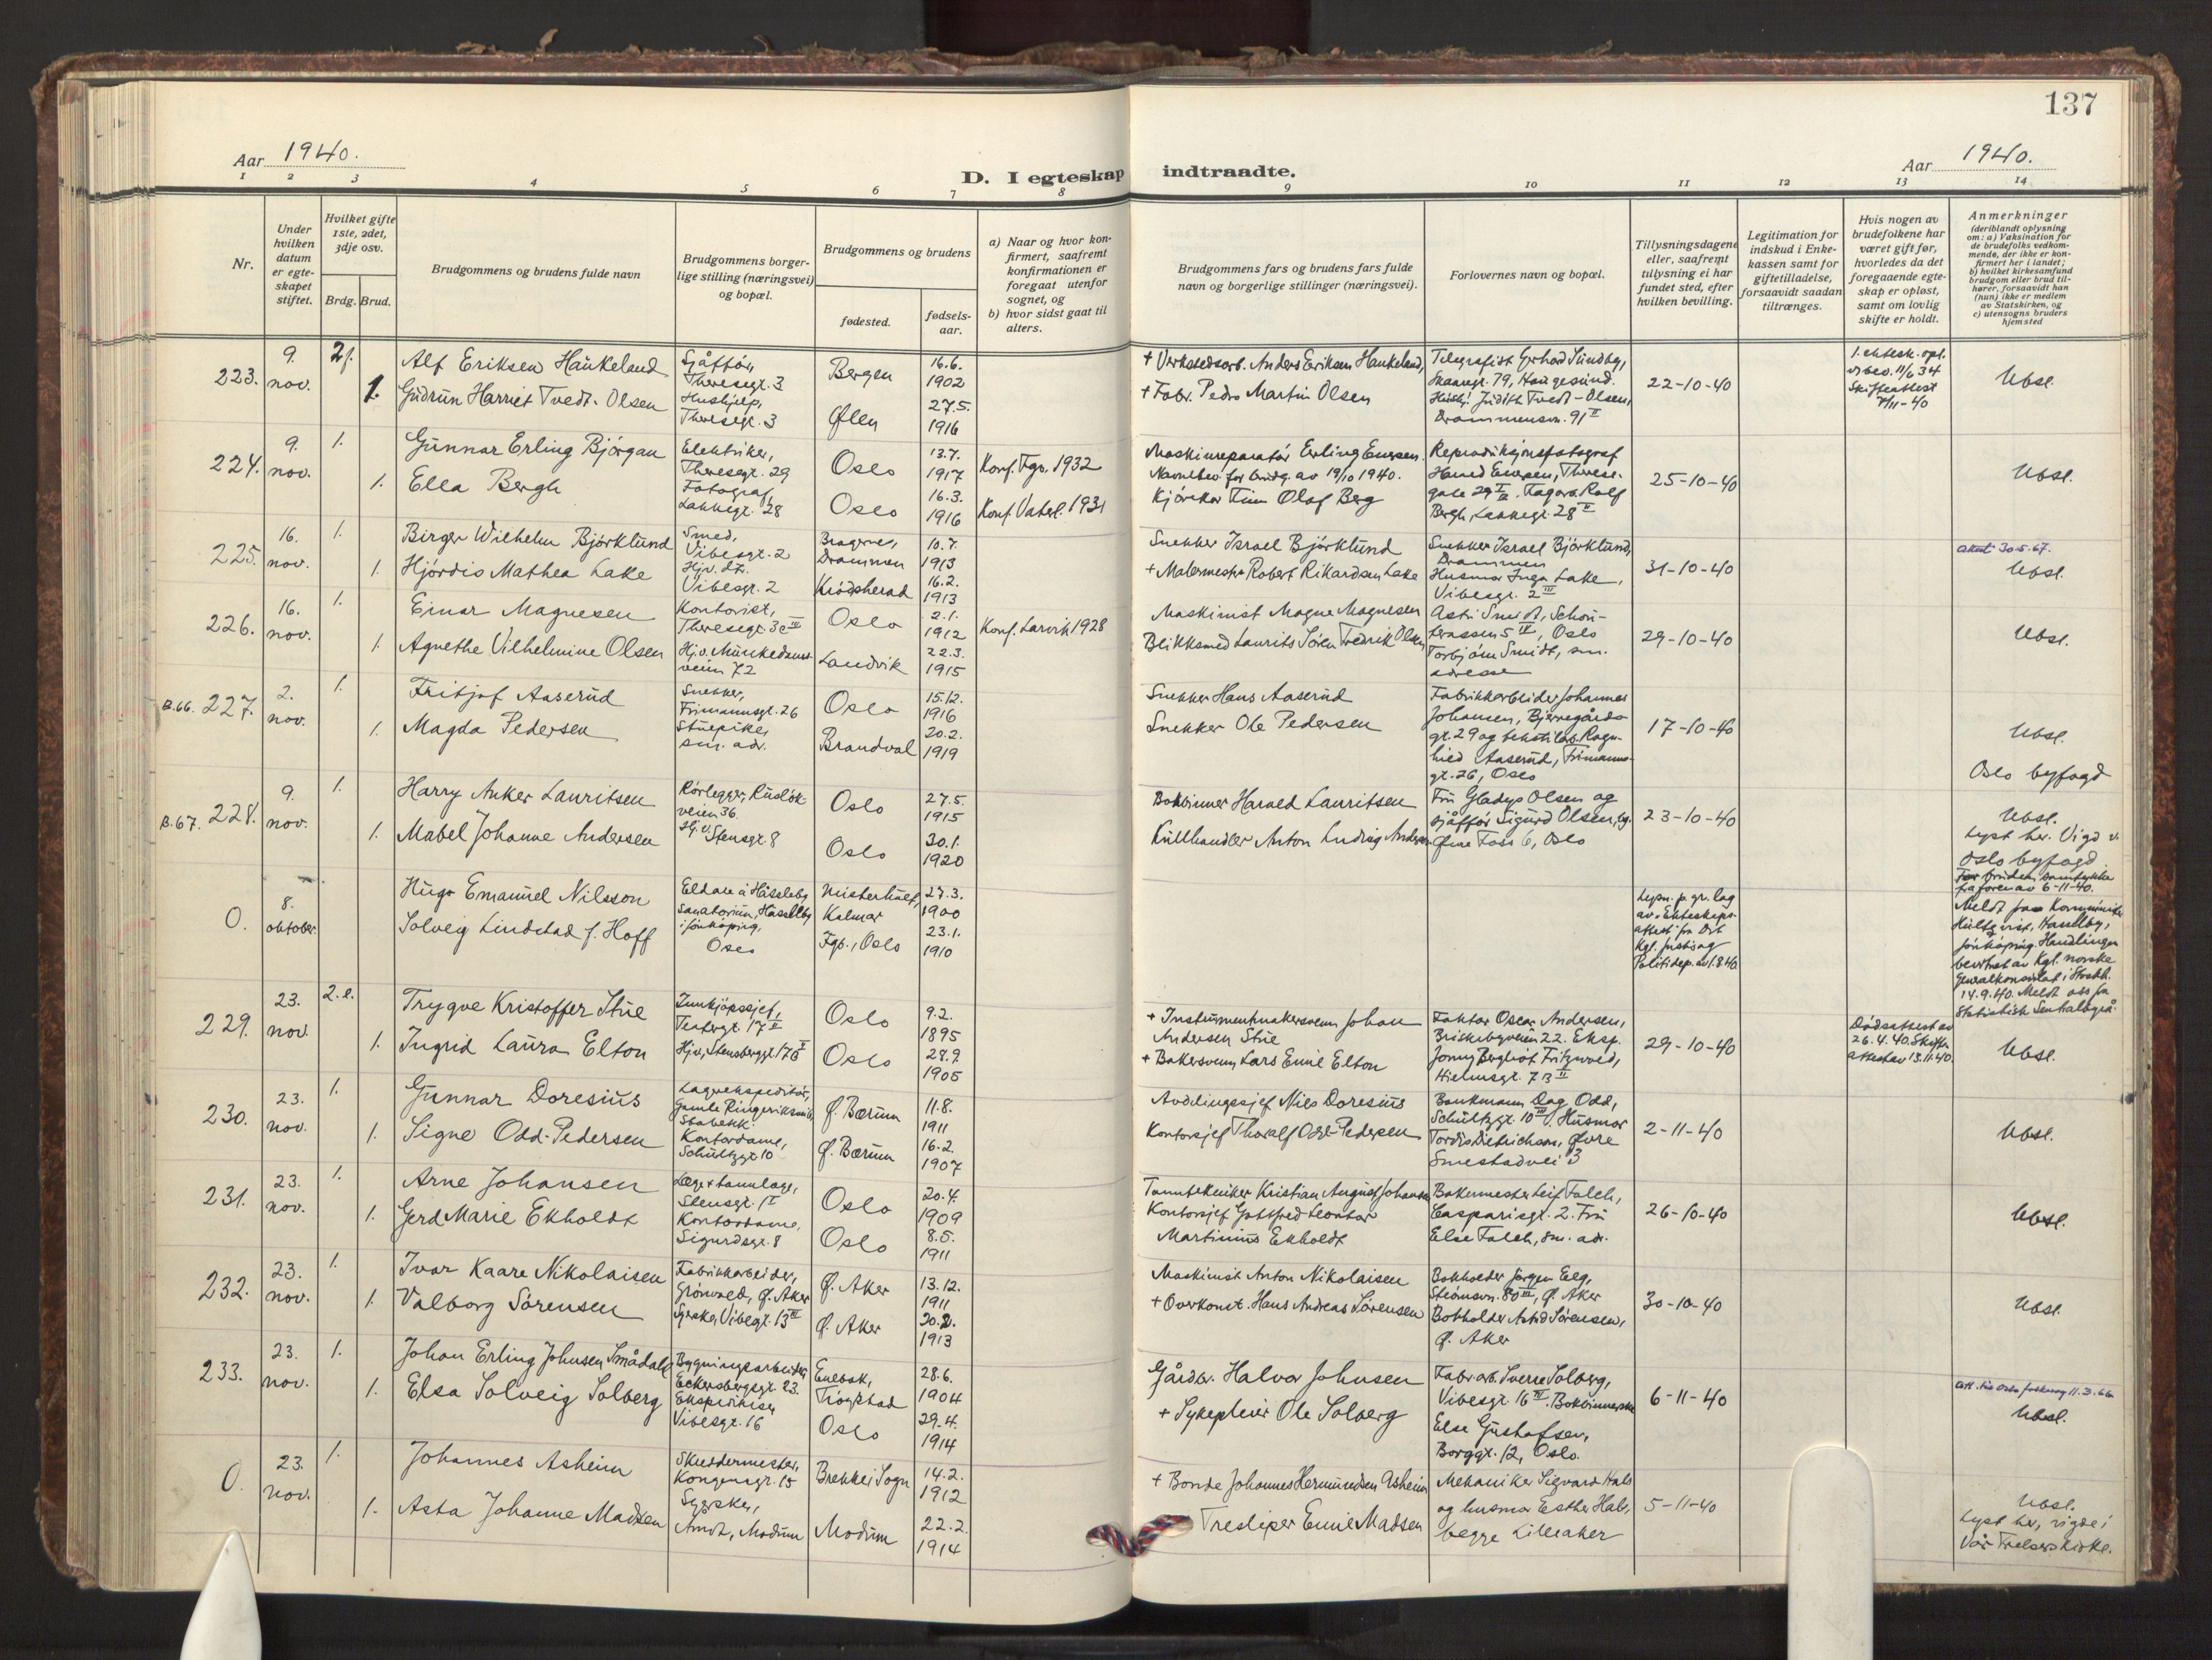 137
Aar 1940.
D. I egteskap indtraadte.
Aar 1940.
1 2 3 4 5 6 7 8 9 10 11 12 13 14
Nr.
Under hvilken datum er egteskapet stiftet.
Hvilket gifte 1ste, 2det, 3dje osv.
Brdg. Brud.
Brudgommens og brudens fulde navn
Brudgommens borgerlige stilling (næringsvei) og bopæl.
Brudgommens og brudens
fødested.
fødselsaar.
a) Naar og hvor konfirmert, saafremt konfirmationen er foregaat utenfor sognet, og
b) hvor sidst gaat til alters.
Brudgommens fars og brudens fars fulde navn og borgerlige stillinger (næringsvei).
Forlovernes navn og bopæl.
Tillysningsdagene eller, saafremt tillysning ei har fundet sted, efter hvilken bevilling.
Legitimation for indskud i Enkekassen samt for giftetilladelse, forsaavidt saadan tiltrænges.
Hvis nogen av brudefolkene har været gift før, hvorledes da det foregaaende egteskap er opløst, samt om lovlig skifte er holdt.
Anmerkninger (deriblandt oplysning om: a) Vaksination for de brudefolks vedkommende, der ikke er konfirmert her i landet; b) hvilket kirkesamfund brudgom eller brud tilhører, forsaavidt han (hun) ikke er medlem av Statskirken, og c) utensogns bruders hjemsted
223. 9. nov. 2f. 1.
Alf Eriksen Haukeland
Gudrun Harriet Tvedt-Olsen
Sjåffør, Theresegt. 3
Hushjelp, Theresegt. 3
Bergen 16.6. 1902
Ølen 27.5. 1916
+ Verkstedsarb. Anders Eriksen Haukeland,
+ Fabr. Pedro Martin Olsen
Telegrafist Gerhard Sundby, Skaaregt. 79, Haugesund.
Judith Tvedt-Olsen, Drammensvn. 91 II
22-10-40
1. ektesk. opl. v/bev. 11/6 34
Skifteattest 7/11-40
Ubsl.
224. 9. nov. 1. 1.
Gunnar Erling Bjørgan
Ella Bergh
Elektriker, Theresegt. 29
Fotograf, Lakkegt. 28
Oslo 13.7. 1917
Oslo 16.3. 1916
Konf. Fgr. 1932
Konf. Vaterl. 1931
Maskinreparatør Erling Evensen.
Navnebev. for brudg. av 19/10 1940.
Kjørekar Finn Olaf Berg
Reproduksjonsfotograf Harald Evensen, Theresegate 29 I. Fagarb. Rolf Bergh, Lakkegt. 28 II
25-10-40
Ubsl.
225. 16. nov. 1. 1.
Birger Wilhelm Bjørklund
Hjørdis Mathea Lake
Smed, Vibesgt. 2
Hjv. dt. Vibesgt. 2
Bragernes, Drammen 10.7. 1913
Krødsherad 16.2. 1913
Snekker Israel Bjørklund
+ Malermestr. Robert Rikardsen Lake
Snekker Israel Bjørklund, Drammen
Husmor Inga Lake, Vibesgt. 2 III
31-10-40
attest 30-5-67.
Ubsl.
226. 16. nov. 1. 1.
Einar Magnesen
Agnethe Vilhelmine Olsen
Kontorist, Theresegt. 3c IV
Hjv. Munkedamsveien 72
Oslo 2.1. 1912
Landvik 22.3. 1915
Konf. Larvik 1928
Maskinist Magne Magnesen
Blikksmed Laurits Søren Fredrik Olsen
Asti Smidt, Schouterrassen 5 IV, Oslo
Torbjørn Smidt, sm. adresse
29-10-40
Ubsl.
B.66. 227. 2. nov. 1. 1.
Fritjof Aaserud
Magda Pedersen
Snekker, Frimannsgt. 26
Stuepike, sm. adr.
Oslo 15.12. 1916
Brandval 20.2. 1919
Snekker Hans Aaserud
Snekker Ole Pedersen
Fabrikkarbeider Johannes Johansen, Bjerregårds gt. 29 og tekstilarb. Ragnhild Aaserud, Frimannsgt. 26, Oslo
17-10-40
Ubsl.
Oslo byfogd
B.67. 228. 9. nov. 1. 1.
Harry Anker Lauritsen
Mabel Johanne Andersen
Rørlegger, Ruseløkveien 36.
Hj.v. Stensgt. 8
Oslo 27.5. 1915
Oslo 30.1. 1920
Bokbinner Harald Lauritsen
Kullhandler Anton Ludvig Andersen
Fru Gladys Olsen og sjåffør Sigurd Olsen, Øvre Foss 6, Oslo
23-10-40
Ubsl.
Lyst her. Vigd v. Oslo byfogd.
For bruden samtykke fra foren av 6-11-40.
0. 8. oktober
Hugo Emanuel Nilsson
Solveig Lindstad f. Hoff
Eldare å Hässleby Sanatorium, Hässelby i Jönköping,
Oslo
Misterhult, Kalmar 27.3. 1900
Fgb., Oslo 23.1. 1910
Lysn. p. gr.lag av Ekteskapsattest fra Det Kgl. Justis og Politidep. av 1.8.40
Meldt fra Kommunist. Hultqvist, Hässelby, Jönköping. Handlingen bevitnet av Kgl. norske Generalkonsulat i Stockh. 14.9.40. Meldt oss fra Statistisk Sentralbyrå.
229. 23. nov. 2.e. 1.
Trygve Kristoffer Stue
Ingrid Laura Elton
Innkjøpssjef, Teatergt. 17 II
Hjv., Stensberggt. 17b I
Oslo 9.2. 1895
Oslo 28.9. 1905
+ Instrumentmakersvenn Johan Andersen Stue
+ Bakersvenn Lars Emil Elton
Faktor Oscar Andersen, Briskebyveien 22. Eksp. Jonny Bergliot Fritzvold, Hielmsgt. 7B II
29-10-40
Dødsattest av 26.4.40. Skifteattest av 13.11.40.
Ubsl.
230. 23. nov. 1. 1.
Gunnar Doresius
Signe Odd-Pedersen
Lagerekspeditør, Gamle Ringeriksvei, Stabekk
Kontordame, Schultzgt. 10
Ø. Bærum 11.8. 1911
Ø. Bærum 16.2. 1907
Avdelingssjef Nils Doresius
Kontorsjef Thoralf Odd-Pedersen
Bankmann Dag Odd, Schultzgt. 10 III. Husmor Tordis Dietrichson, Øvre Smestadvei 3
2-11-40
Ubsl.
231. 23. nov. 1. 1.
Arne Johansen
Gerd Marie Ekholdt
Læge + tannlæge, Stensgt. 1 I
Kontordame, Sigurdsgt. 8
Oslo 20.4. 1909
Oslo 8.5. 1911
Tanntekniker Kristian August Johansen
Kontorsjef Gottfred Leonhar Martinius Ekholdt
Bakermester Leif Falch, Casparisgt. 2. Fru Else Falch, sm. adr.
26-10-40
Ubsl.
232. 23. nov. 1. 1.
Ivar Kaare Nikolaisen
Valborg Sørensen
Fabrikkarbeider, Grønvold, Ø. Aker
Syerske, Vibesgt. 13 III
Ø. Aker 13.12. 1911
Ø. Aker 20.2. 1913
Maskinist Anton Nikolaisen
+ Overkonst. Hans Andreas Sørensen
Bokholder Jørgen Eeg, Strømsvn. 80 III, Ø. Aker
Bokholder Astrid Sørensen, Ø. Aker
30-10-40
Ubsl.
233. 23. nov. 1. 1.
Johan Erling Johnsen Smådal
Elsa Solveig Solberg
Bygningsarbeider, Eckersbergsgt. 23.
Ekspeditrise, Vibesgt. 16
Enebak, Trøgstad 28.6. 1904
Oslo 29.4. 1914
Gårdbr. Halvor Johnsen
+ Sykepleier Ole Solberg
Fabr.arb. Sverre Solberg, Vibesgt. 16 IV. Bokbinnerske Else Gustafsen, Borggt. 12, Oslo.
6-11-40
att. til Oslo folkereg. 11.3.66
Ubsl.
0. 23. nov. 1. 1.
Johannes Asheim
Asta Johanne Madsen
Skreddermester, Kongensgt. 15
Syerske, Åmot, Modum
Brekke i Sogn 14.2. 1912
Modum 22.2. 1914
+ Bonde Johannes Hermundsen Asheim
Tresliper Emil Madsen
Mekaniker Sigvard Hals og husmor Esther Hals, begge Lilleaker
5-11-40
Ubsl.
Lyst her, vigde i Vår Frelsers kirke.